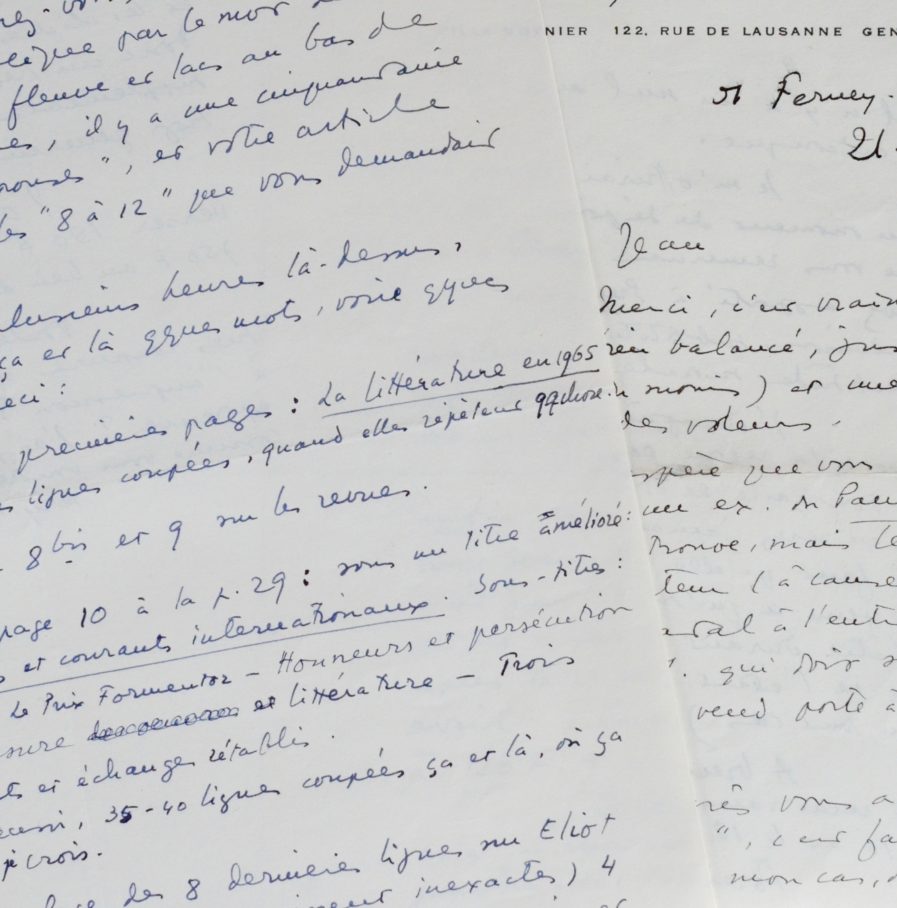 par le mot
fleuve et lacs au bas de
es, il y a une cinquantaine
", et votre article
les "8 à 12" que vous demandait
plusieurs heures là-dessus,
ça et là qques mots, voire qques
eci :
premières pages : La littérature en 1965
lignes coupées, quand elles répètent qqchose.
8 bis et 9 sur les revues.
page 10 à la p. 29 : sous un titre amélioré :
s et courants internationaux. Sous-titres :
Le Prix Formentor - Honneurs et persécution
sure et littérature - Trois
ts et échanges rétablis.
, 35-40 lignes coupées ça et là, où ça
je crois.
des 8 dernières lignes sur Eliot
inexactes) 4
NIER 122, RUE DE LAUSANNE GEN
Ferney.
21.
Jean
Merci, c'est vraim
balancé, jus
moins) et une
des voleurs.
spère que vous
un ex. du
trouve, mais
(à cause
à l'entr
qui dois
porte à
rès vous a
", c'est fa
mon cas,